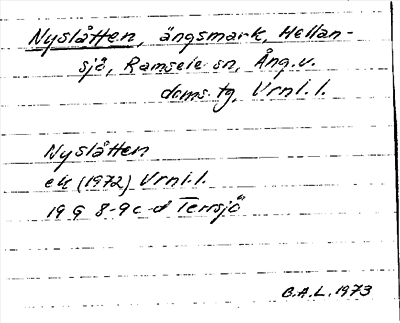 Nyslåtten, ängsmark, Hellan-
sjö, Ramsele sn, Ång. v.
doms. tg, Vrnl.l.
Nyslåtten
ek (1972) Vrnl.l.
19 G 8-9 c-d Terrsjö
B.A.L. 1973